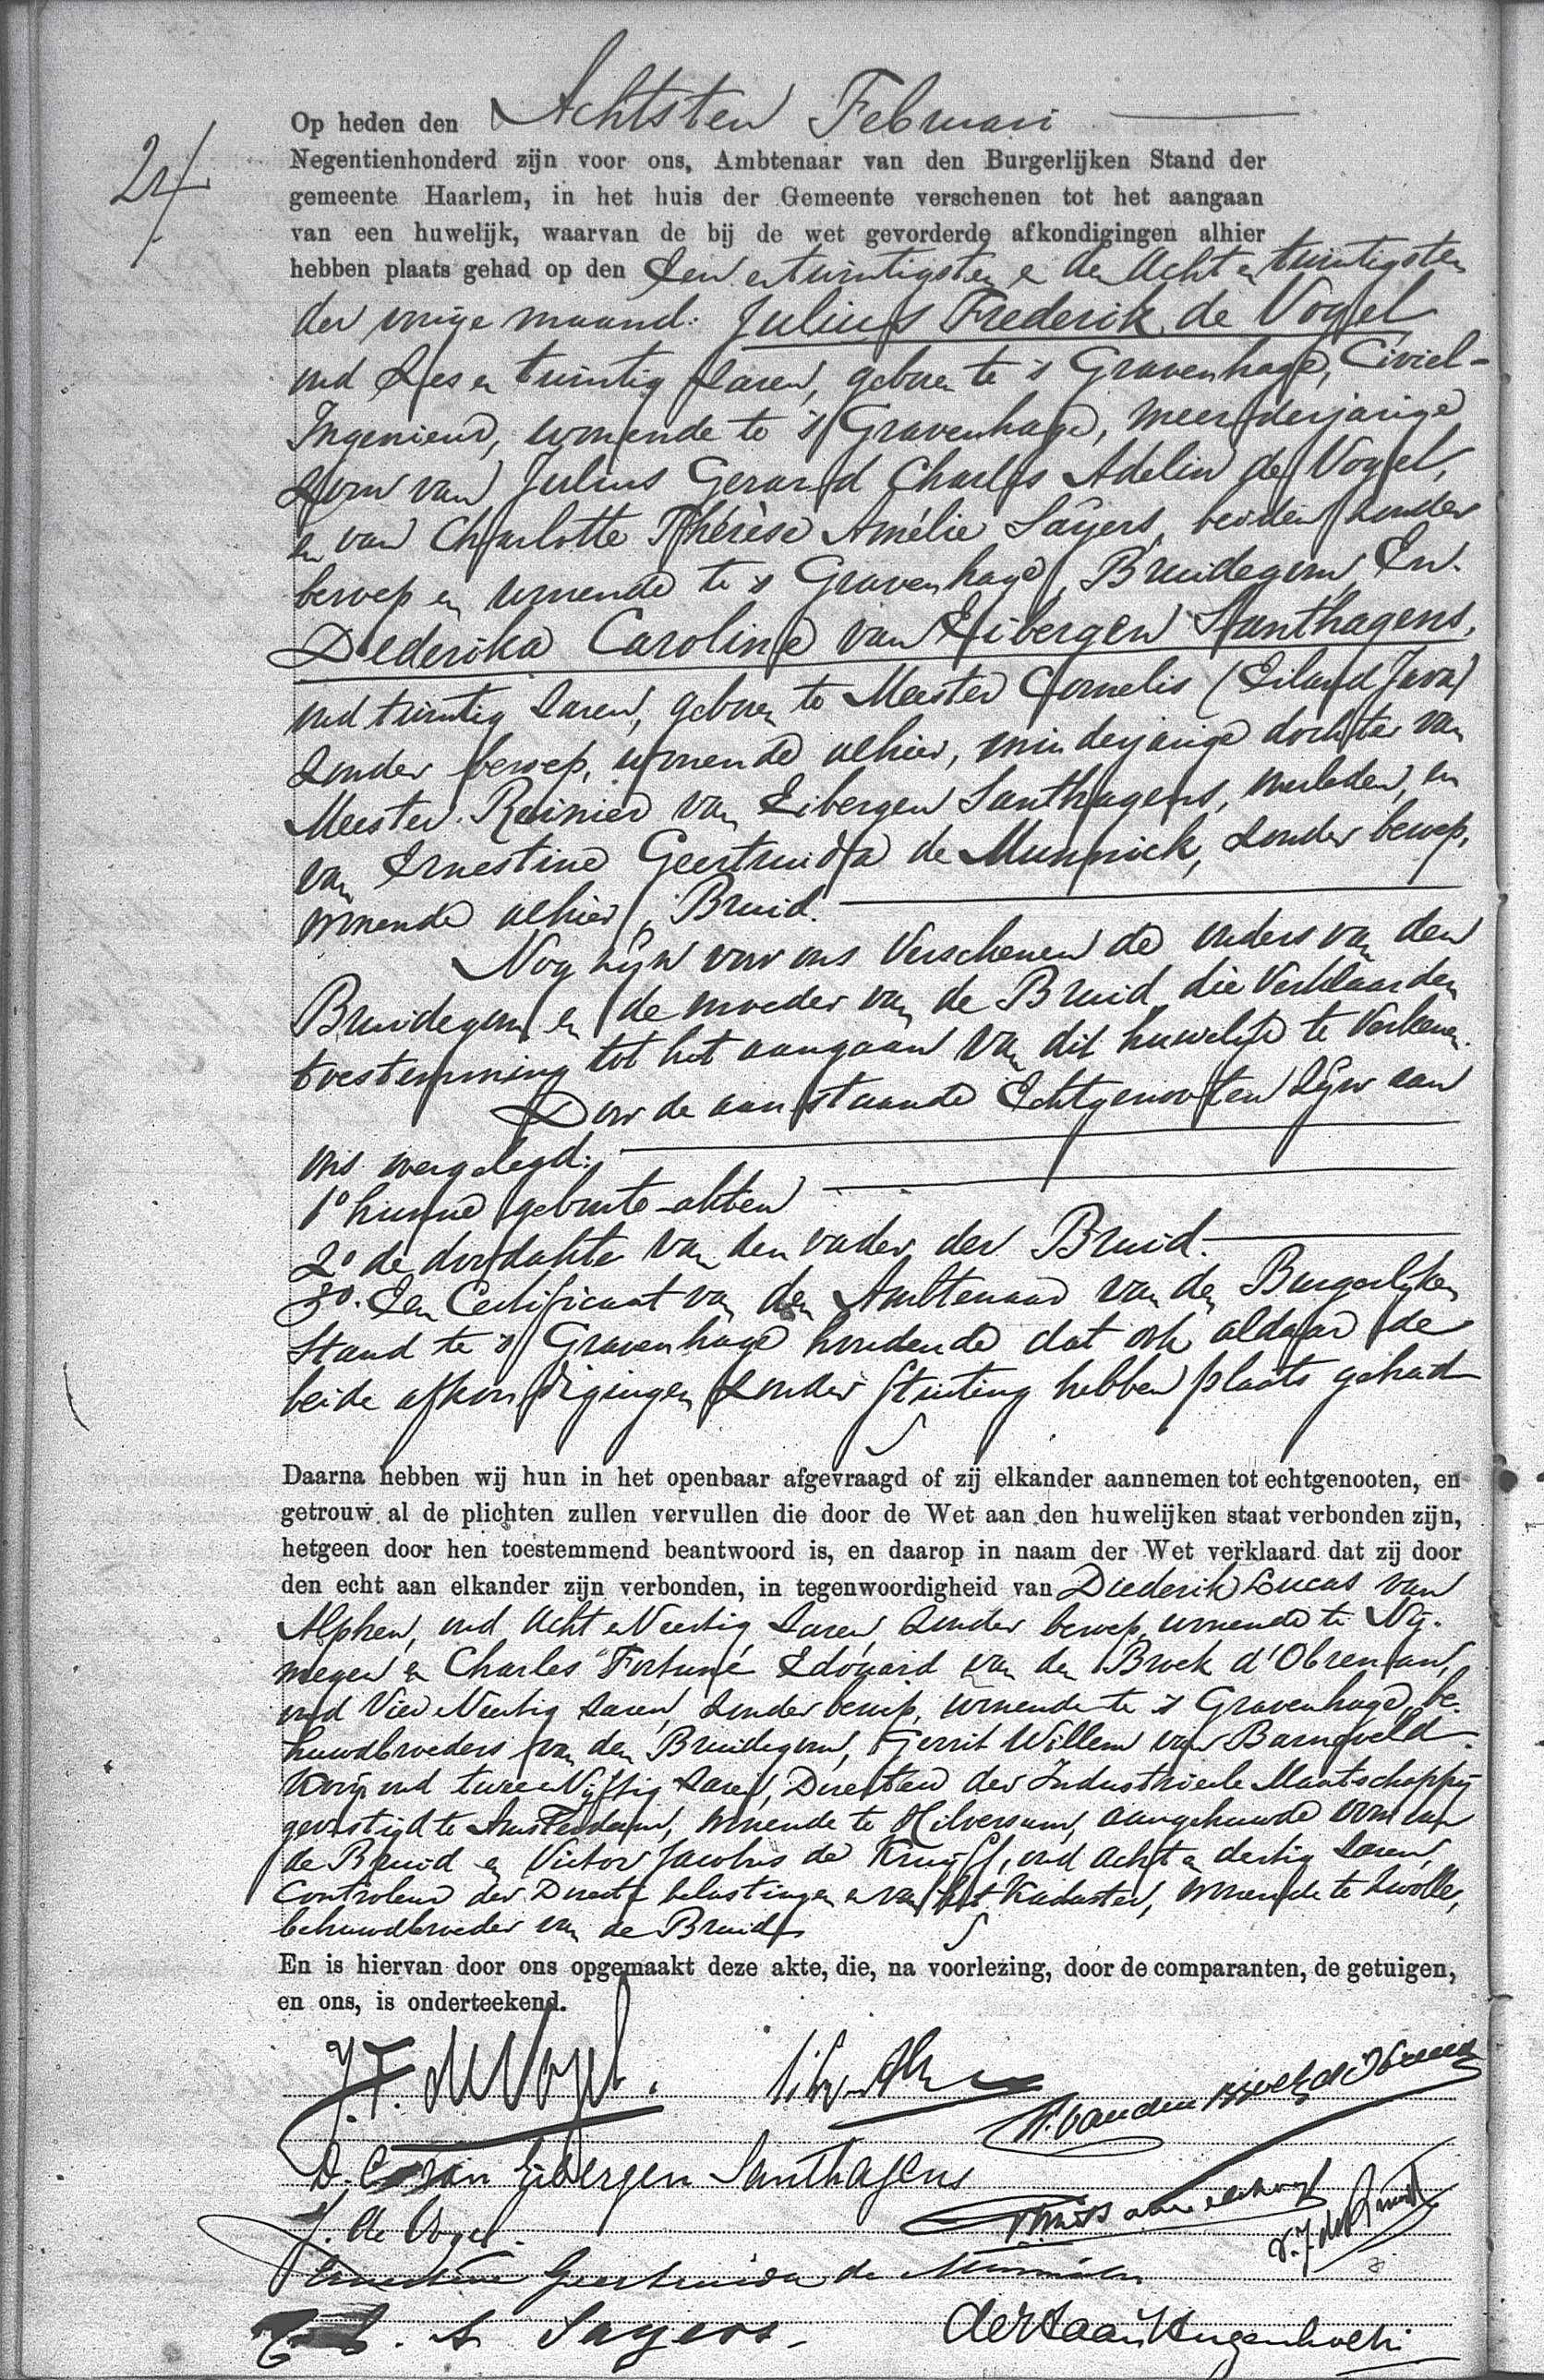 24
Op heden den Achtsten Februari
Negentienhonderd zijn voor ons, Ambtenaar van den Burgerlijken Stand der
gemeente Haarlem, in het huis der Gemeente verschenen tot het aangaan
van een huwelijk, waarvan de bij de wet gevorderde afkondigingen alhier
hebben plaats gehad op den Een en twintigsten en den Acht en twintigsten
der vorige maand: Julius Frederik de Vogel
oud Zes en twintig Jaren, geboren te 's Gravenhage, Civiel-
Ingenieur, wonende te 's Gravenhage, meerderjarige
Zoon van Julius Gerard Charles Adelin de Vogel,
en van Charlotte Thérèse Amélie Sayers, beiden zonder
beroep en wonende te 's Gravenhage, Bruidegom, En
Dederika Caroline van Eibergen Santhagens,
oud twintig Jaren, geboren te Meester Cornelis (Eiland Java)
zonder beroep, wonende alhier, minderjarige dochter van
Meester Reinier van Eibergen Santhagens, overleden, en
van Ernestine Geertruida de Munnick, zonder beroep,
wonende alhier, Bruid.
Nog zijn voor ons verschenen de ouders van den
Bruidegom en de moeder van de Bruid, die verklaarden
toestemming tot het aangaan van dit huwelijk te verleenen.
Door de aanstaande Echtgenooten zijn aan
ons overgelegd:
1º hunne geboorte-akten
2º de doodakte van den vader der Bruid.
3º. Een Certificaat van den Ambtenaar van den Burgerlijken
Stand te 's Gravenhage houdende dat ook aldaar de
beide afkondigingen zonder stuiting hebben plaats gehad
Daarna hebben wij hun in het openbaar afgevraagd of zij elkander aannemen tot echtgenooten, en
getrouw al de plichten zullen vervullen die door de Wet aan den huwelijken staat verbonden zijn,
hetgeen door hen toestemmend beantwoord is, en daarop in naam der Wet verklaard dat zij door
den echt aan elkander zijn verbonden, in tegenwoordigheid van Diederik Lucas van
Alphen, oud Acht en Veertig Jaren, zonder beroep, wonende te Nij-
megen en Charles Fortuné Edouard van den Broek d'Obrenan,
oud Vier en Veertig Jaren, zonder beroep, wonende te 's Gravenhage, be-
huwdbroeders van den Bruidegom, Gerrit Willem van Barneveld
Kooij oud twee en Vijftig Jaren, Directeur der Industrieele Maatschappij
gevestigd te Amsterdam, wonende te Hilversum, aangehuwde oom van
de Bruid en Victor Jacobus de Kruijff, oud acht en dertig Jaren,
Controleur der Directe belastingen en van het Kadaster, wonende te Zwolle,
behuwdbroeder van de Bruid
En is hiervan door ons opgemaakt deze akte, die, na voorlezing, door de comparanten, de getuigen,
en ons, is onderteekend.
J. F. de Vogel.
van den Broek d'Obrenan
D. C. van Eibergen Santhagens
J. de Vogel.
V. J. de Kruijff
Ernestine Geertruida de Munnick
A Sayers.
de Haan Hugenholtz